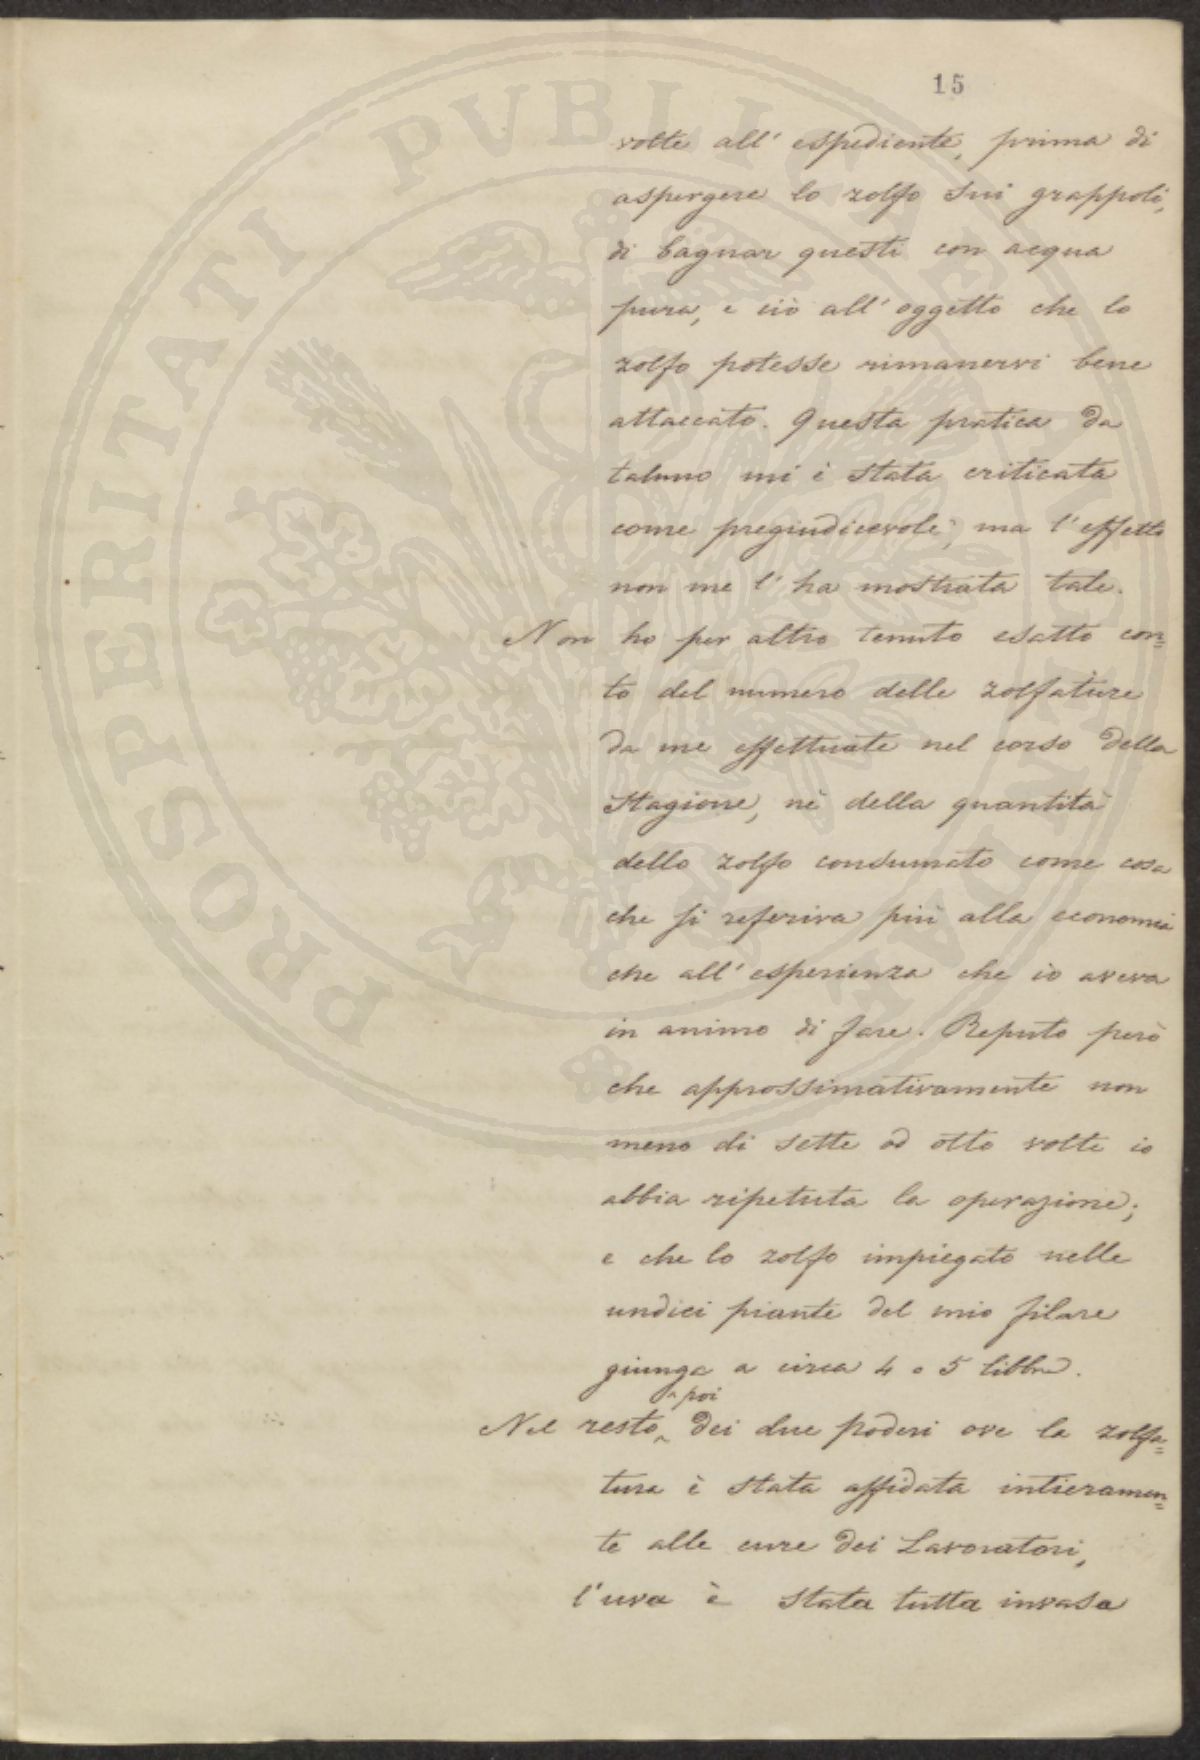 15
volte all' espediente, prima di
aspergere lo zolfo sui grappoli,
di bagnar questi con acqua
pura, e ciò all' oggetto che lo
zolfo potesse rimanervi bene
attaccato. Questa pratica da
taluno mi è stata criticata
come pregiudicevole, ma l' effetto
non me l' ha mostrata tale.
Non ho per altro tenuto esatto con=
to del numero delle zolfature
da me effettuate nel corso della
stagione, nè della quantità
dello zolfo consumato come cosa
che si referiva più alla economia
che all' esperienza che io aveva
in animo di fare. Reputo però
che approssimativamente non
meno di sette od otto volte io
abbia ripetuta la operazione;
e che lo zolfo impiegato nelle
undici piante del mio filare
giunga a circa 4 o 5 libbre.
poi
Nel resto dei due poderi ove la zolfa=
tura è stata affidata intieramen=
te alle cure dei Lavoratori,
l'uva è stata tutta invasa
PROSPERITATI PUBLICAE AUGENDAE